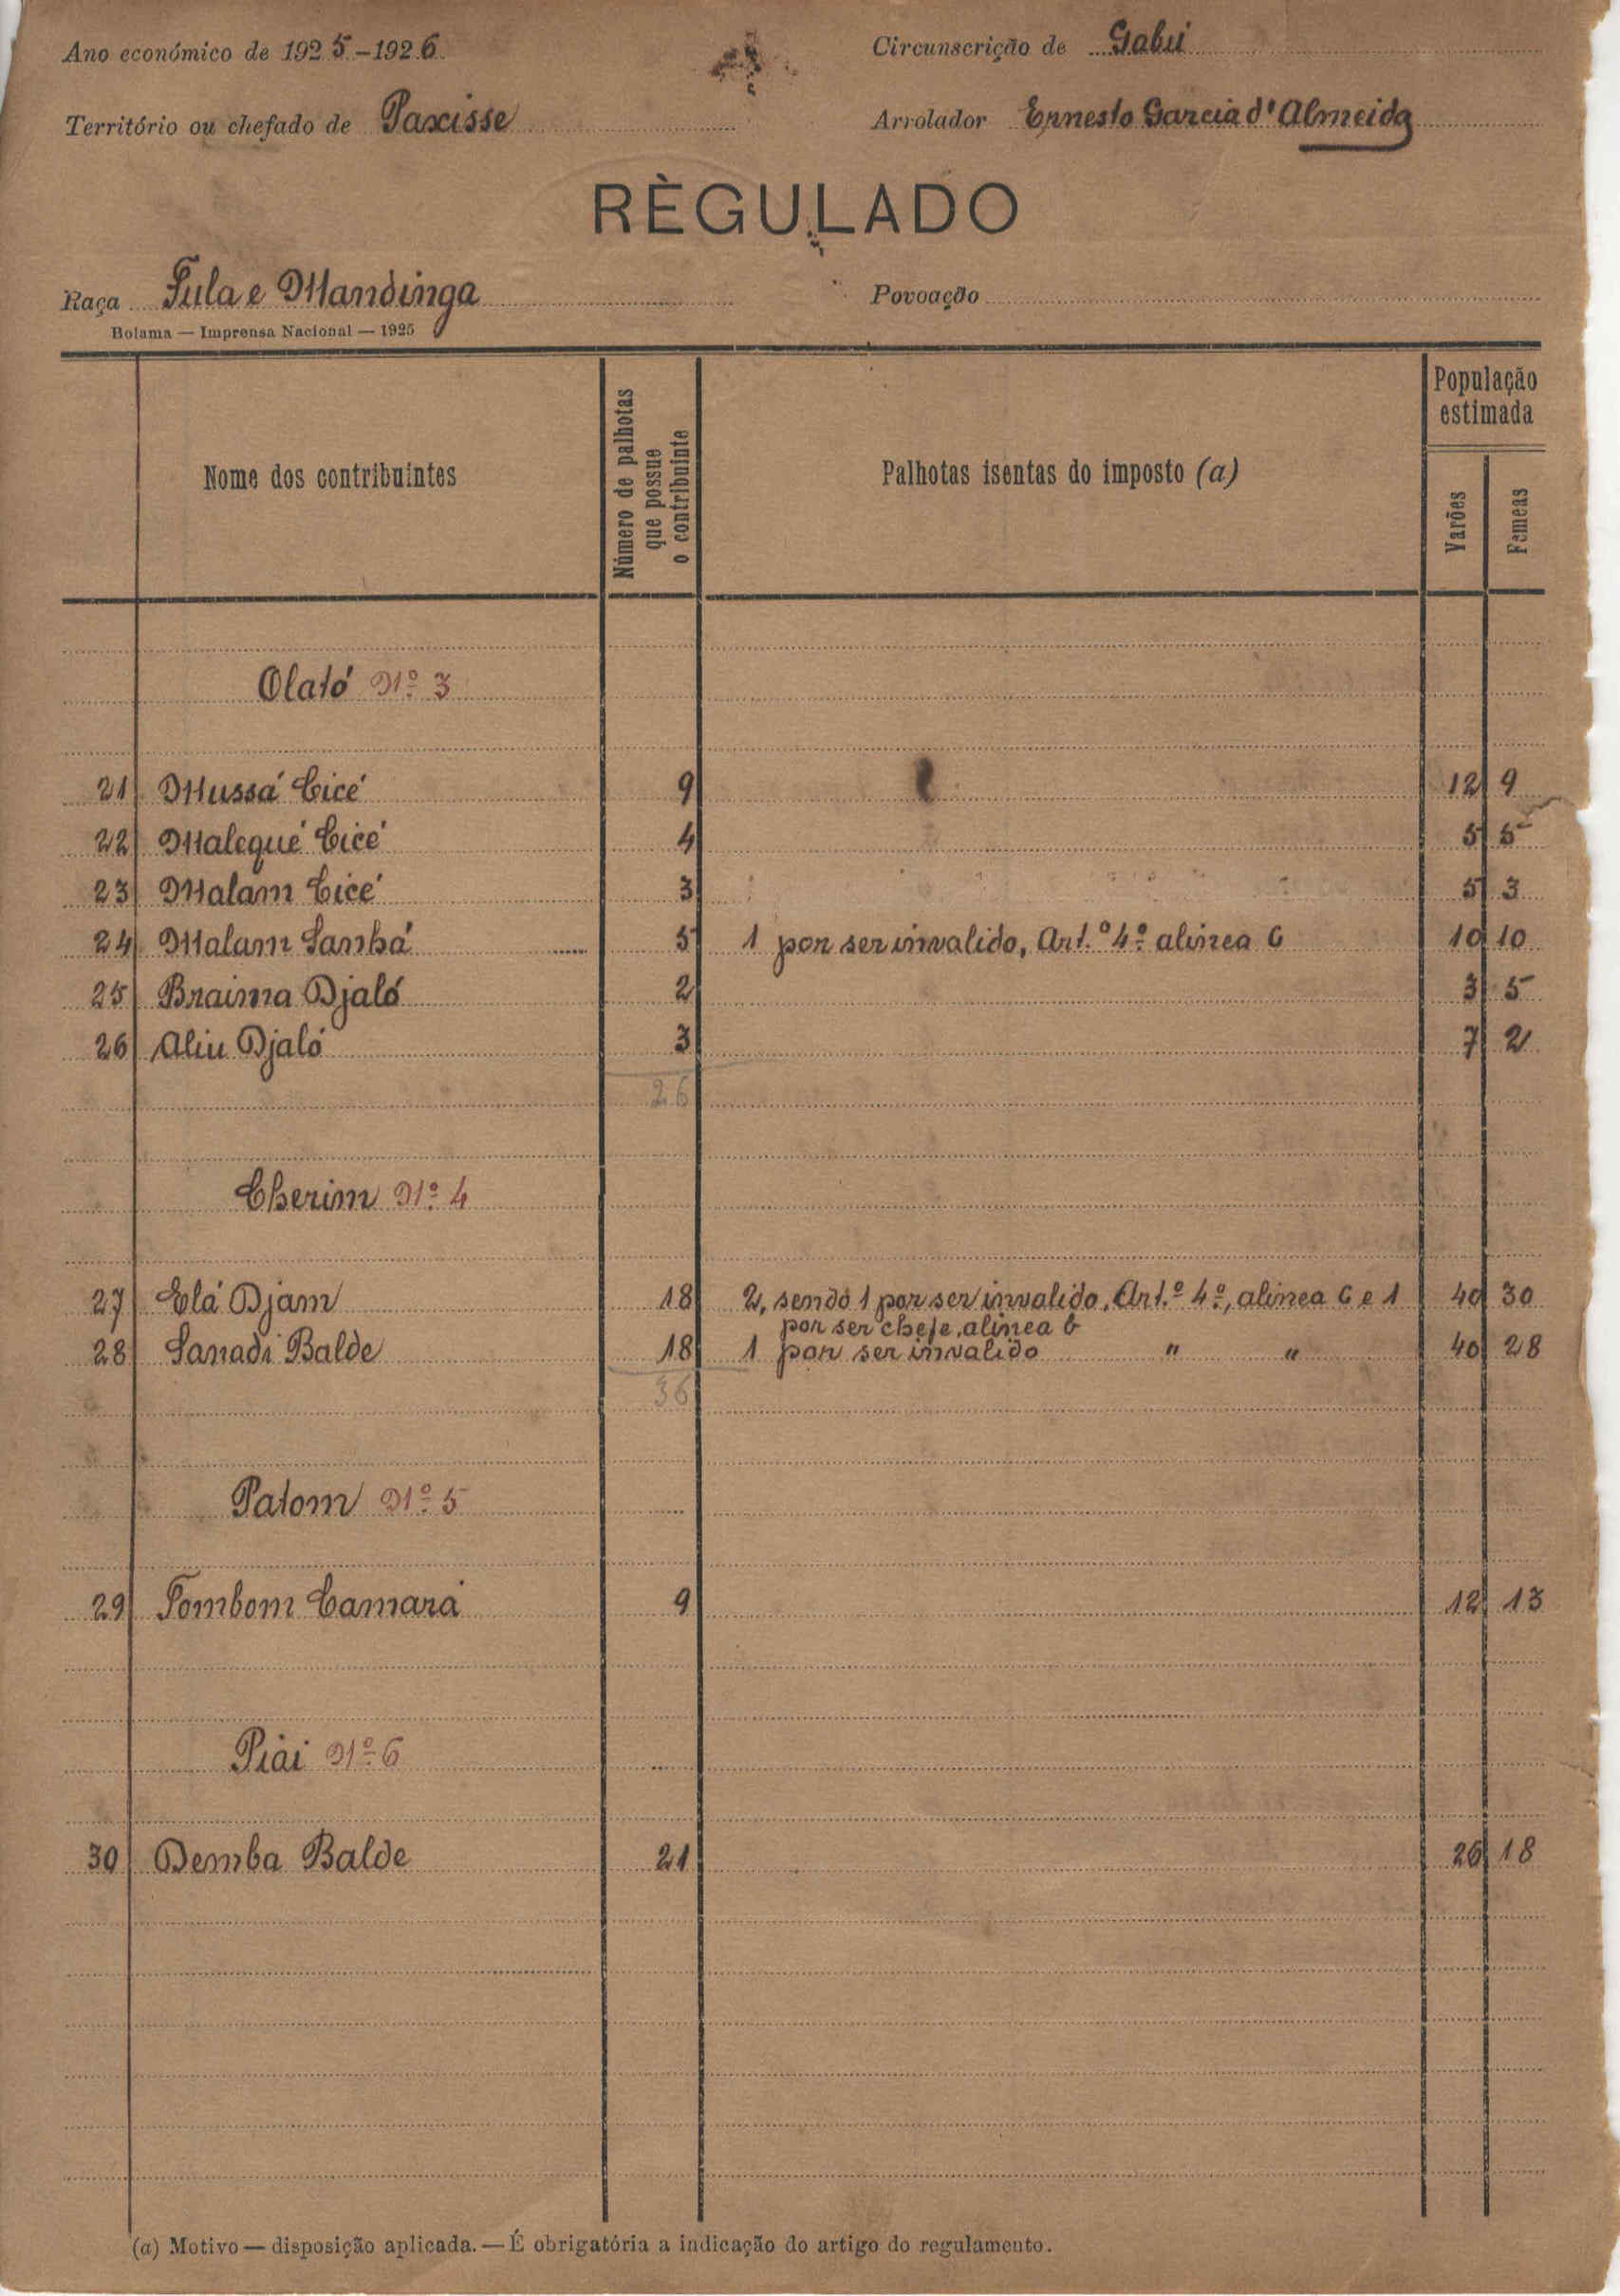 Ano económico de 1925-1926
Circunscrição de Gabú
Território ou chefado de Paxisse
Arrolador Ernesto Garcia d'Almeida
RÈGULADO
Raça Fula e Mandinga
Povoação
Bolama — Imprensa Nacional — 1925
Nome dos contribuintes
Número de palhotas que possue o contribuinte
Palhotas isentas do imposto (a)
População estimada
Varões
Femeas
Olató Nº 3
21 Mussá Cicé 9 12 9
22 Malequé Cicé 4 5 5
23 Malam Cicé 3 5 3
24 Malam Sanhá 5 1 por ser invalido, Art.º 4º alinea C 10 10
25 Braima Djaló 2 3 5
26 Aliu Djaló 3 7 2
26
Cherim Nº 4
27 Elá Djam 18 2, sendo 1 por ser invalido, Art.º 4º, alinea C e 1 40 30
por ser chefe, alinea b
28 Sanadi Balde 18 1 por ser invalido " " 40 28
36
Patom Nº 5
29 Tombom Camará 9 12 13
Piai Nº 6
30 Demba Balde 21 26 18
(a) Motivo — disposição aplicada. — É obrigatória a indicação do artigo do regulamento.